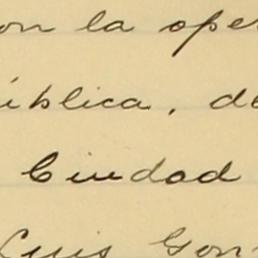 on la ope
ública, de
Ciudad
Luis Gon